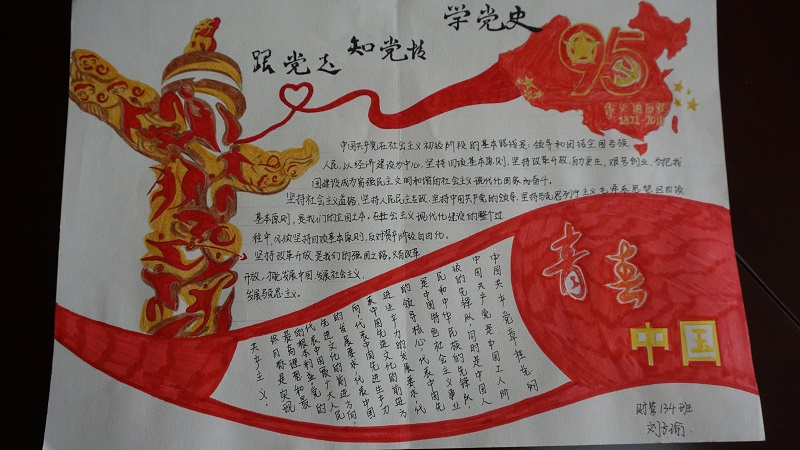 跟党走 知党情 学党史
95
中国共产党在社会主义初级阶段的基本路线是:领导和团结全国各族
人民,以经济建设为中心,坚持四项基本原则,坚持改革开放,自力更生,艰苦创业,为把我
国建设成为富强民主文明和谐的社会主义现代化国家而奋斗。
坚持社会主义道路、坚持人民民主专政、坚持中国共产党的领导、坚持马克思列宁主义毛泽东思想这四项
基本原则,是我们的立国之本。在社会主义现代化建设的整个过
程中,必须坚持四项基本原则,反对资产阶级自由化。
坚持改革开放是我们的强国之路。只有改革
开放,才能发展中国、发展社会主义、
发展马克思主义。
青春
中国
中国共产党章程党的
中国共产党是中国工人阶
级的先锋队,同时是中国人
民和中华民族的先锋队,
是中国特色社会主义事业
的领导核心,代表中国先
进生产力的发展要求,代
表中国先进文化的前进方
向,代表中国先进生产力
的发展要求,代表中国
先进文化的前进方向,
代表中国最广大人民
的根本利益。党的
最高理想和最
终目标是实现
共产主义。
财管134班